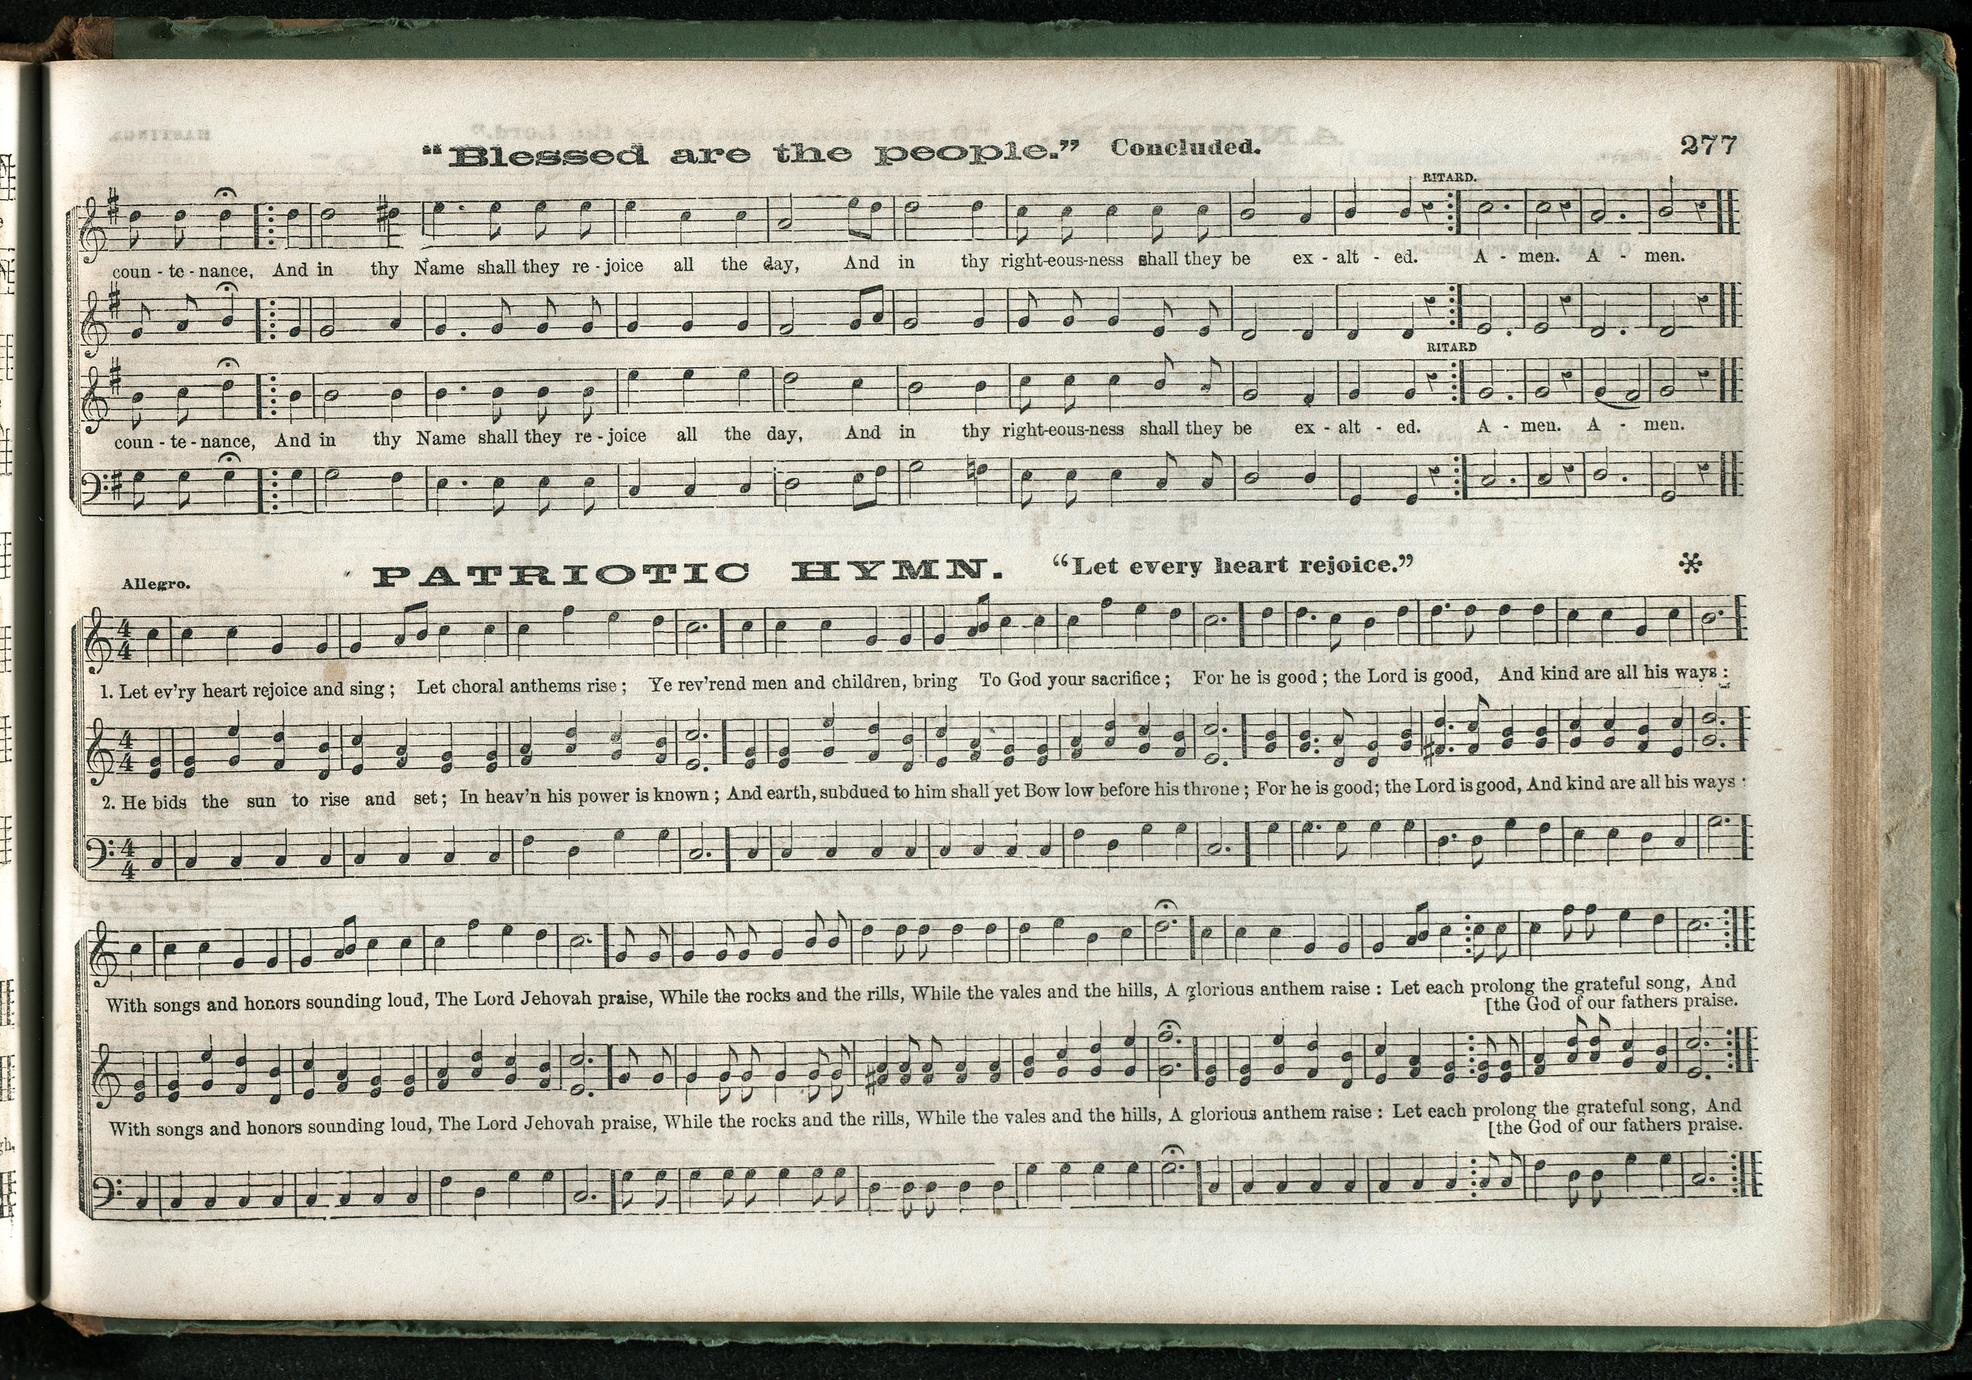 "Blessed are the people." Concluded. 277
RITARD.
coun - te - nance, And in thy Name shall they re - joice all the day, And in thy right-eous-ness shall they be ex - alt - ed. A - men. A - men.
RITARD
coun - te - nance, And in thy Name shall they re - joice all the day, And in thy right-eous-ness shall they be ex - alt - ed. A - men. A - men.
Allegro. PATRIOTIC HYMN. "Let every heart rejoice." *
4 4
1. Let ev'ry heart rejoice and sing; Let choral anthems rise; Ye rev'rend men and children, bring To God your sacrifice; For he is good; the Lord is good, And kind are all his ways:
4 4
2. He bids the sun to rise and set; In heav'n his power is known; And earth, subdued to him shall yet Bow low before his throne; For he is good; the Lord is good, And kind are all his ways:
4 4
With songs and honors sounding loud, The Lord Jehovah praise, While the rocks and the rills, While the vales and the hills, A glorious anthem raise: Let each prolong the grateful song, And
[the God of our fathers praise.
With songs and honors sounding loud, The Lord Jehovah praise, While the rocks and the rills, While the vales and the hills, A glorious anthem raise: Let each prolong the grateful song, And
[the God of our fathers praise.